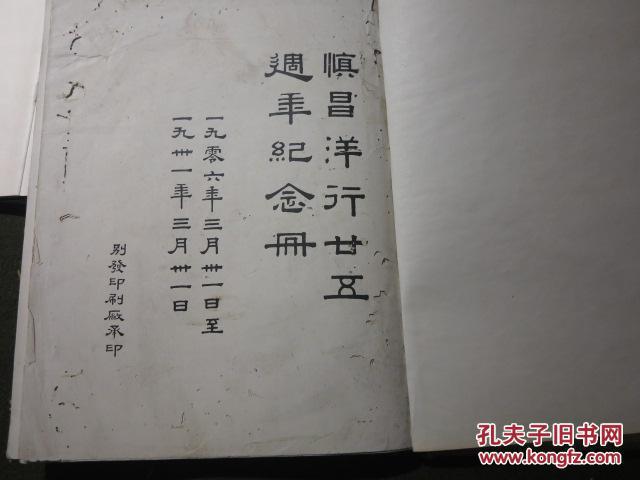 慎昌洋行廿五
週年紀念冊
一九零六年三月卅一日至
一九卅一年三月卅一日
別發印刷厰承印
孔夫子旧书网
www.kongfz.com